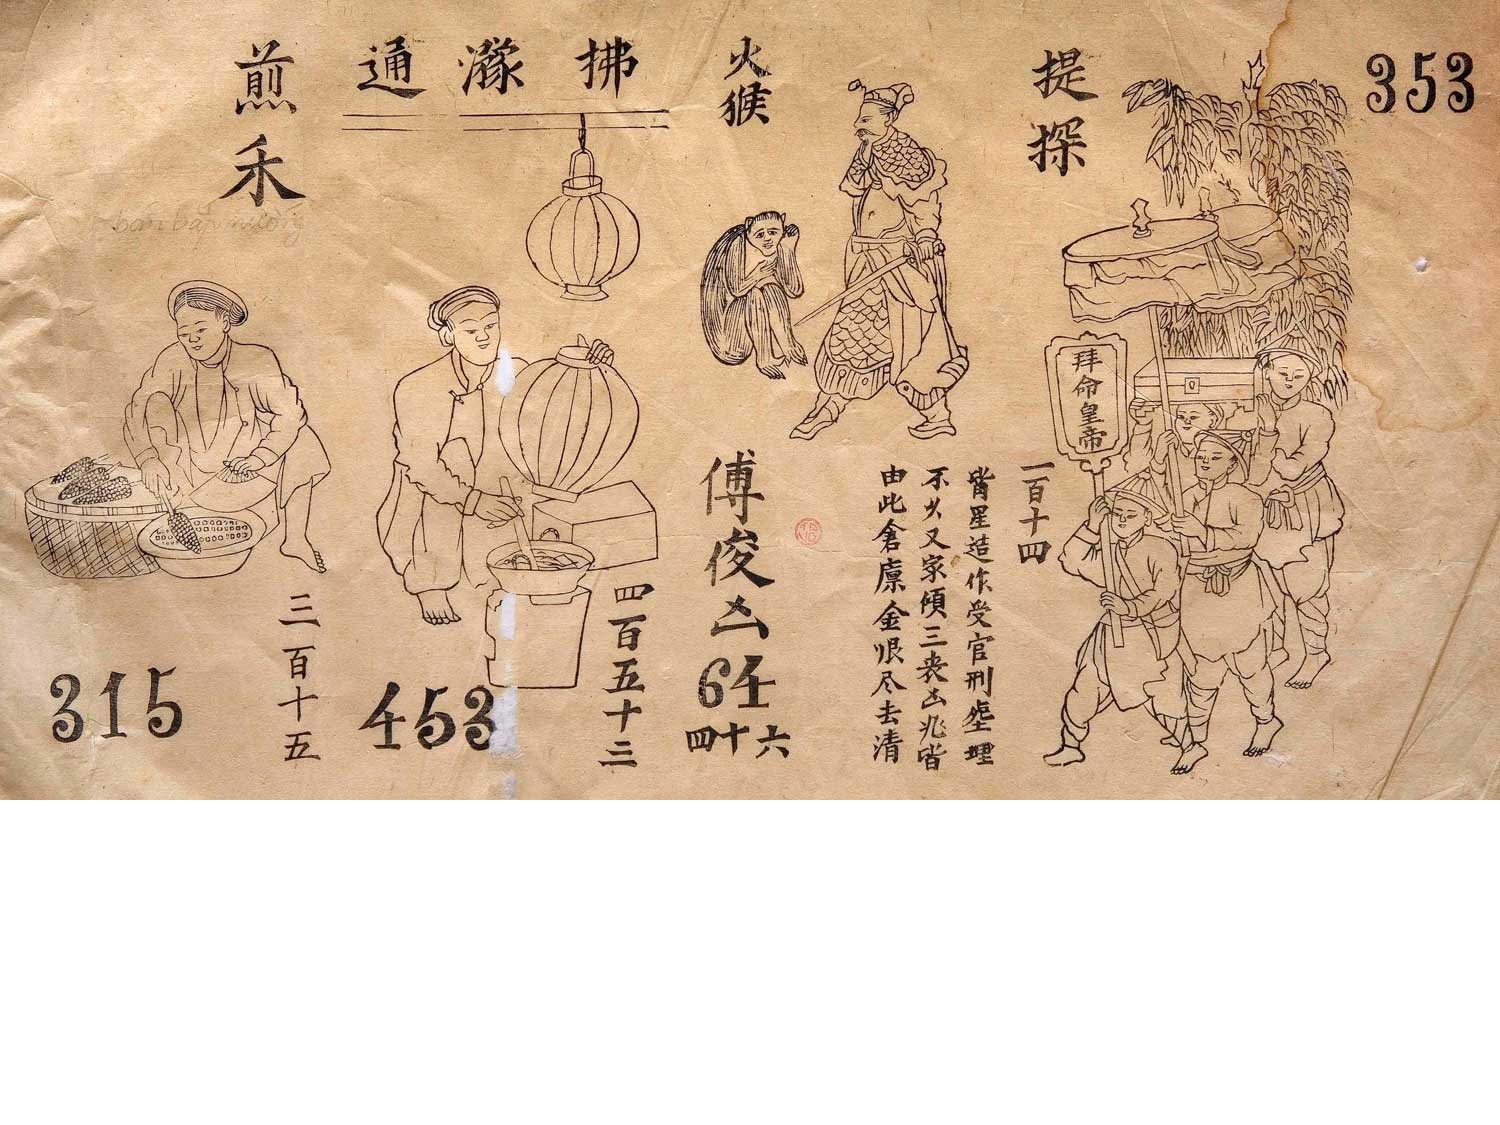 353
提探
拜命皇帝
一百十四
觜星造作受官刑
不久又家傾三丧凶
由此倉廪金恨尽去清
火猴
傅俊凶
64
六十四
拂濴通
453
四百五十三
煎禾
315
三百十五